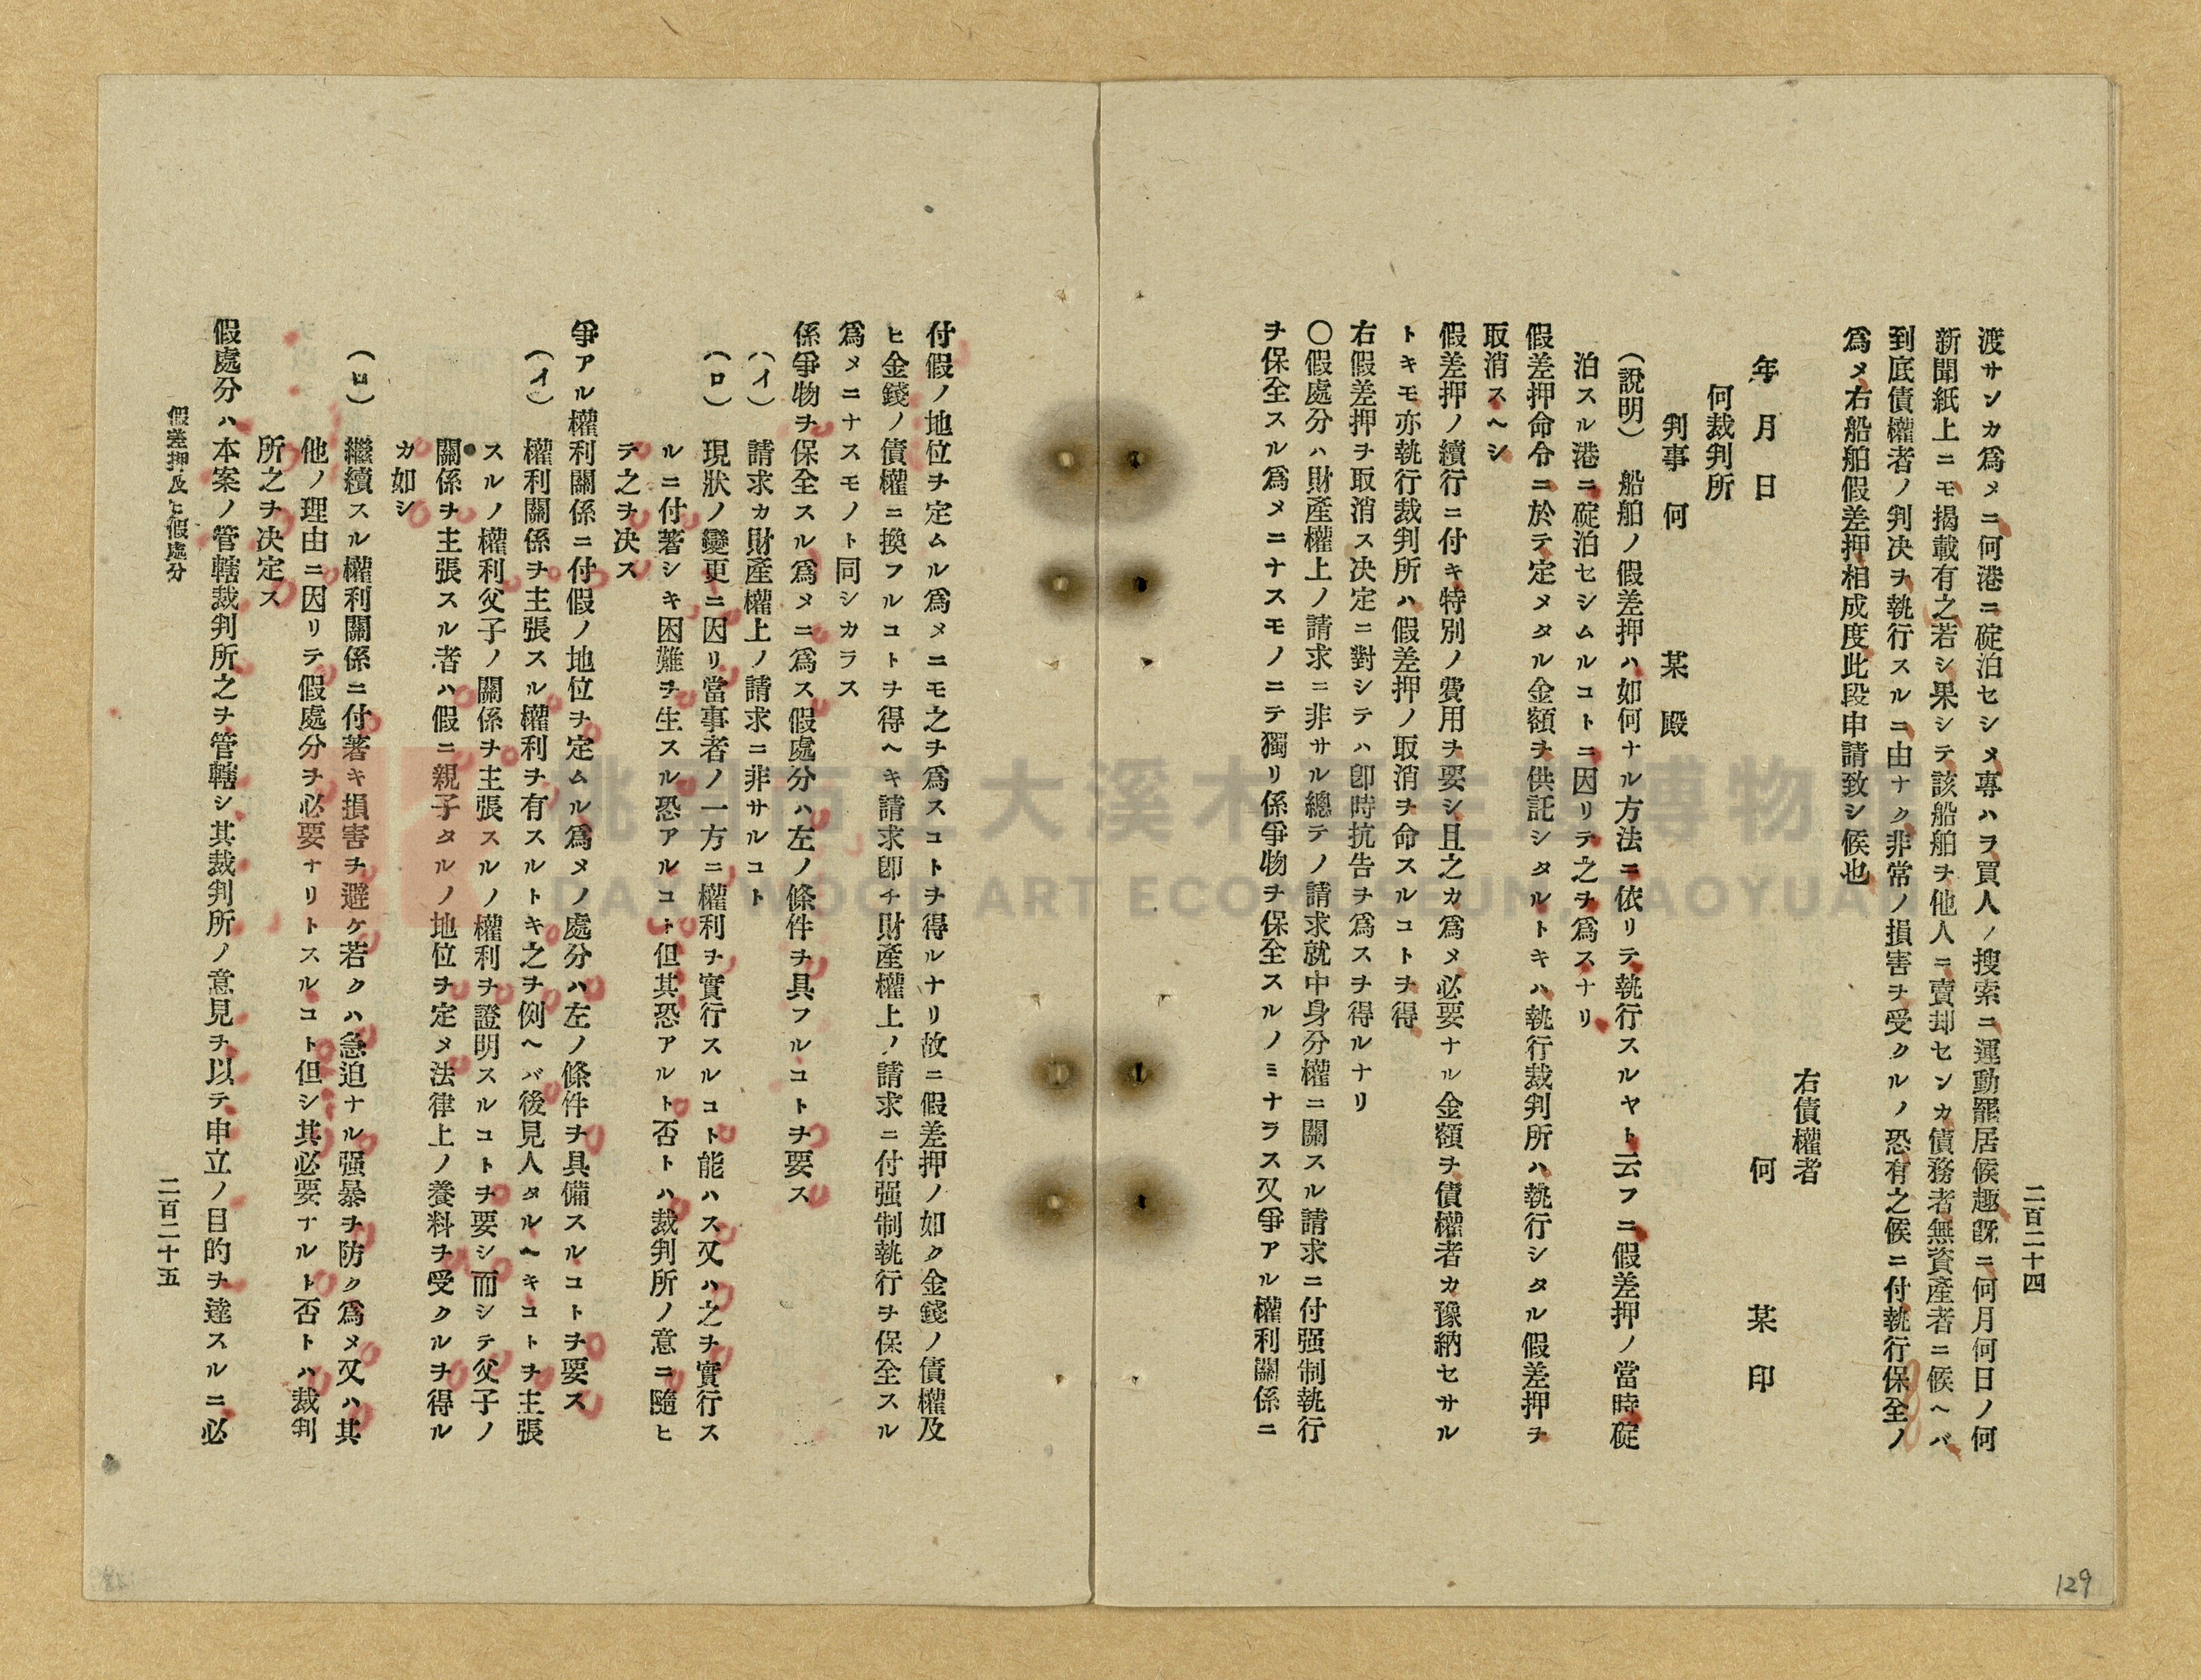 二百二十四
渡サンカ爲メニ何港ニ碇泊セシメ專ハラ買人ノ搜索ニ運動罷居候趣既ニ何月何日ノ何
新聞紙上ニモ揭載有之若シ果シテ該船舶ヲ他人ニ賣却センカ債務者無資産者ニ候ヘバ
到底債權者ノ判決ヲ執行スルニ由ナク非常ノ損害ヲ受クルノ恐有之候ニ付執行保全ノ
爲メ右船舶假差押相成度此段申請致シ候也
右債權者
年 月 日 何 某 印
何裁判所
判事 何 某 殿
(說明) 船舶ノ假差押ハ如何ナル方法ニ依リテ執行スルヤト云フニ假差押ノ當時碇
泊スル港ニ碇泊セシムルコトニ因リテ之ヲ爲スナリ
假差押命令ニ於テ定メタル金額ヲ供託シタルトキハ執行裁判所ハ執行シタル假差押ヲ
取消スヘシ
假差押ノ續行ニ付キ特別ノ費用ヲ要シ且之カ爲メ必要ナル金額ヲ債權者カ豫納セサル
トキモ亦執行裁判所ハ假差押ノ取消ヲ命スルコトヲ得
右假差押ヲ取消ス决定ニ對シテハ卽時抗告ヲ爲スヲ得ルナリ
〇假處分ハ財産權上ノ請求ニ非サル總テノ請求就中身分權ニ關スル請求ニ付强制執行
ヲ保全スル爲メニナスモノニテ獨リ係爭物ヲ保全スルノミナラス又爭アル權利關係ニ
付假ノ地位ヲ定ムル爲メニモ之ヲ爲スコトヲ得ルナリ故ニ假差押ノ如ク金錢ノ債權及
ヒ金錢ノ債權ニ換フルコトヲ得ヘキ請求卽チ財產權上ノ請求ニ付强制執行ヲ保全スル
爲メニナスモノト同シカラス
係爭物ヲ保全スル爲メニ爲ス假處分ハ左ノ條件ヲ具フルコトヲ要ス
(イ) 請求カ財產權上ノ請求ニ非サルコト
(ロ) 現狀ノ變更ニ因リ當事者ノ一方ニ權利ヲ實行スルコト能ハス又ハ之ヲ實行ス
ルニ付著シキ困難ヲ生スル恐アルコト但其恐アルト否トハ裁判所ノ意ニ隨ヒ
テ之ヲ决ス
爭アル權利關係ニ付假ノ地位ヲ定ムル爲メノ處分ハ左ノ條件ヲ具備スルコトヲ要ス
(イ) 權利關係ヲ主張スル權利ヲ有スルトキ之ヲ例ヘバ後見人タルヘキコトヲ主張
スルノ權利父子ノ關係ヲ主張スルノ權利ヲ證明スルコトヲ要シ而シテ父子ノ
關係ヲ主張スル者ハ假ニ親子タルノ地位ヲ定メ法律上ノ養料ヲ受クルヲ得ル
カ如シ
(ロ) 繼續スル權利關係ニ付著キ損害ヲ避ケ若クハ急迫ナル强暴ヲ防ク爲メ又ハ其
他ノ理由ニ因リテ假處分ヲ必要ナリトスルコト但シ其必要ナルト否トハ裁判
所之ヲ决定ス
假處分ハ本案ノ管轄裁判所之ヲ管轄シ其裁判所ノ意見ヲ以テ申立ノ目的ヲ達スルニ必
假差押及ヒ假處分
二百二十五
129
桃園市立大溪木藝生態博物館
DAXI WOOD ART ECOMUSEUM, TAOYUAN